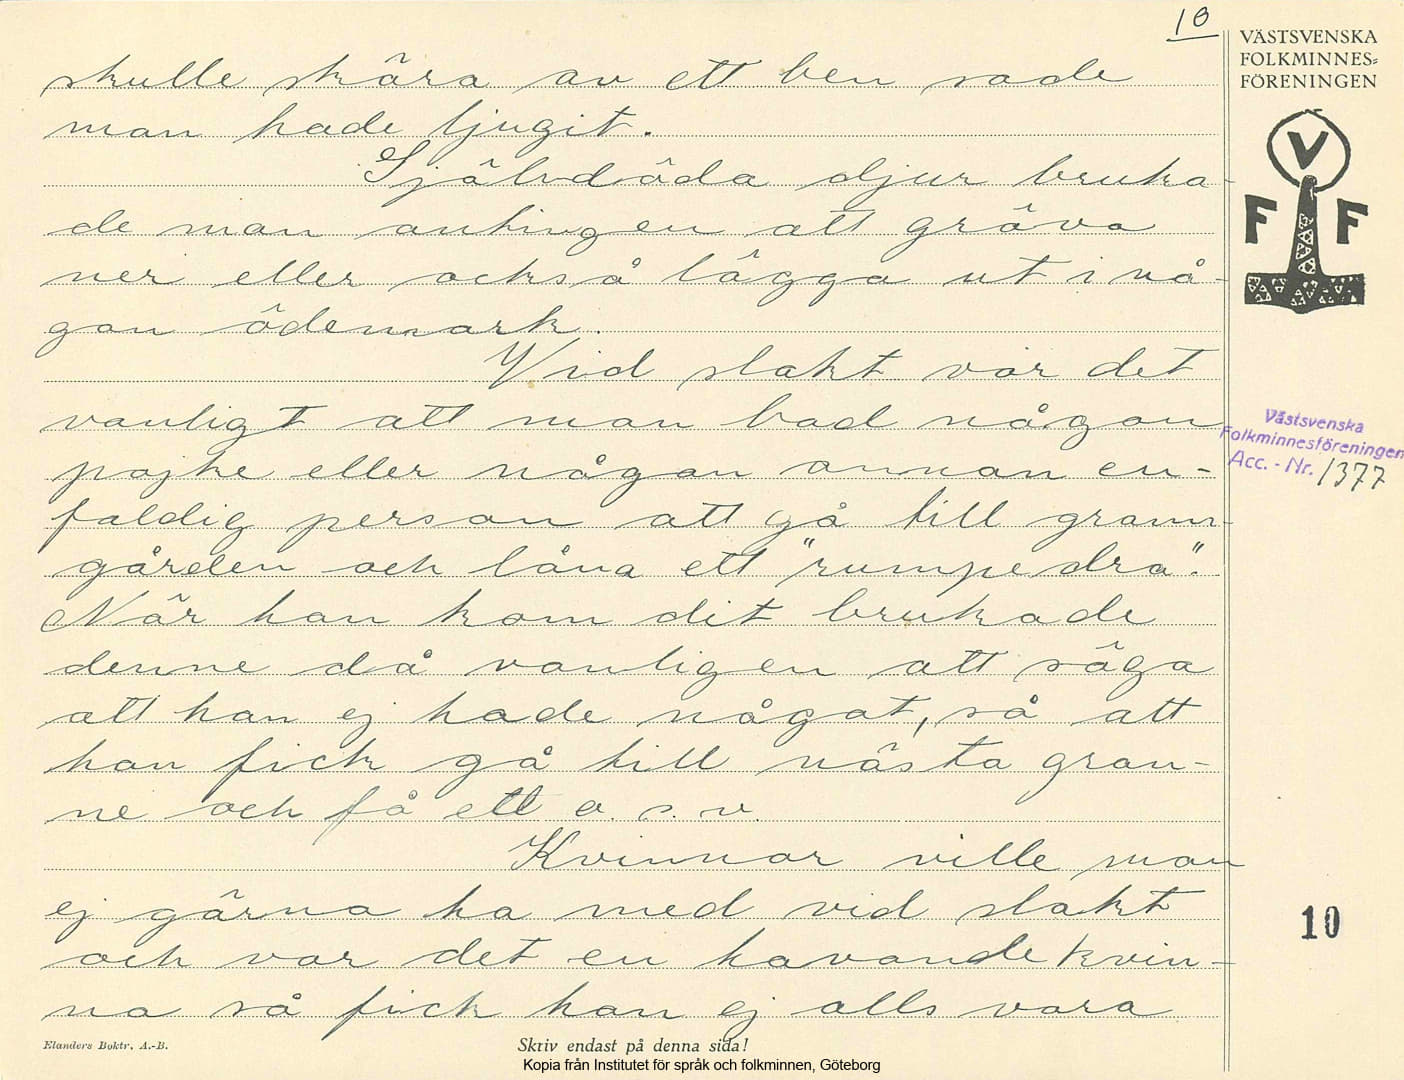 10
VÄSTSVENSKA
FOLKMINNES=
FÖRENINGEN
V
F F
skulle skära av ett ben sade
man hade ljugit.
Självdöda djur bruka-
de man antingen att gräva
ner eller också lägga ut i nå-
gon ödemark.
Vid slakt var det
vanligt att man bad någon
pojke eller någon annan en-
faldig person att gå till grann-
gården och låna ett "rumpedra".
När han kom dit brukade
denne då vanligen att säga
att han ej hade något, så att
han fick gå till nästa gran-
ne och få ett o. s. v.
Kvinnor ville man
ej gärna ha med vid slakt
och var det en havande kvin-
na så fick hon ej alls vara
Västsvenska
Folkminnesföreningen
Acc. - Nr. 1377
10
Elanders Boktr. A.-B.
Skriv endast på denna sida!
Kopia från Institutet för språk och folkminnen, Göteborg